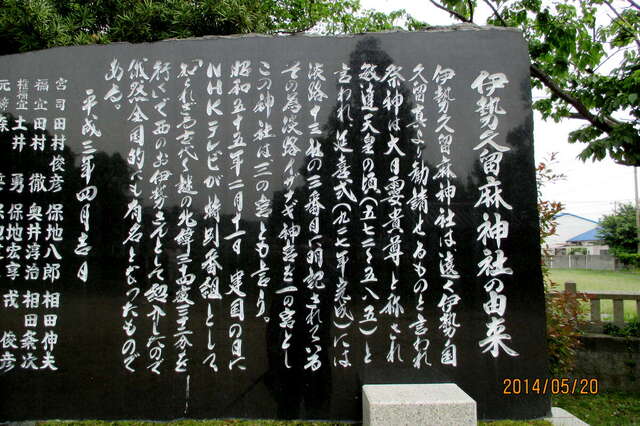 伊勢久留麻神社の由来
伊勢久留麻神社は遠く伊勢の国
久留真より勧請せるものと言われ
祭神は大日霊貴尊と称され
敏達天皇の頃(五七二〜五八五)と
言われ延喜式(九二七年完成)には
淡路十三社の三番目に列記されて
その為淡路イザナギ神宮を一の宮とし
この神社は二の宮とも言う。
昭和五十五年二月十一日建国の日に
NHKテレビが特別番組として
知られざる古代へ
行くで西のお伊勢さんとして紹介したので
俄然全国的にも有名となったもので
ある。
平成三年四月吉日
宮司田村俊彦 保地八郎 相田伸夫
福宜田村徹 奥井淳治 相田
土井勇 保地宏享 戎俊彦
2014/05/20